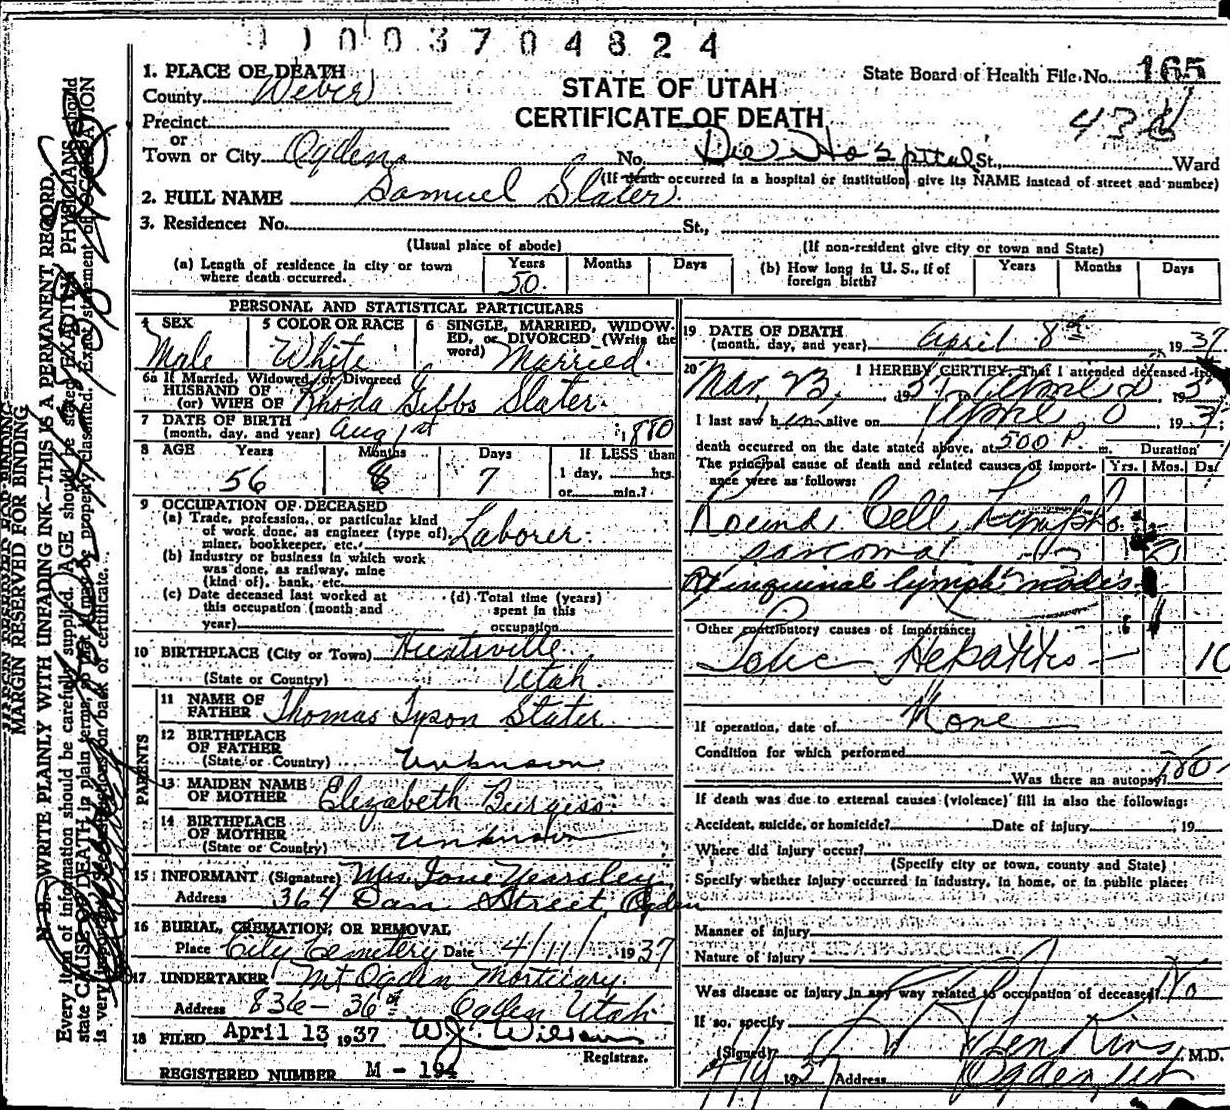 1003704824
1. PLACE OF DEATH
County Weber
STATE OF UTAH
CERTIFICATE OF DEATH
State Board of Health File No. 165
436
Precinct
or
Town or City Ogden No. Dee Hospital St., Ward
(If death occurred in a hospital or institution, give its NAME instead of street and number)
2. FULL NAME Samuel Slater
3. Residence: No. St.,
(Usual place of abode) (If non-resident give city or town and State)
(a) Length of residence in city or town where death occurred. Years 50 Months Days
(b) How long in U. S., if of foreign birth? Years Months Days
PERSONAL AND STATISTICAL PARTICULARS
4 SEX Male
5 COLOR OR RACE White
6 SINGLE, MARRIED, WIDOWED, or DIVORCED (Write the word) Married
6a If Married, Widowed, or Divorced
HUSBAND OF
(or) WIFE OF Rhoda Gibbs Slater
7 DATE OF BIRTH
(month, day, and year) Aug 1st 1880
8 AGE Years 56 Months 8 Days 7 If LESS than
1 day, hrs.
or min.?
9 OCCUPATION OF DECEASED
(a) Trade, profession, or particular kind
of work done, as engineer (type of),
miner, bookkeeper, etc. Laborer
(b) Industry or business in which work
was done, as railway, mine
(kind of), bank, etc.
(c) Date deceased last worked at
this occupation (month and
year)
(d) Total time (years)
spent in this
occupation
10 BIRTHPLACE (City or Town) Huntsville
(State or Country) Utah
PARENTS
11 NAME OF
FATHER Thomas Tyson Slater
12 BIRTHPLACE
OF FATHER
(State or Country) Unknown
13 MAIDEN NAME
OF MOTHER Elizabeth Burgess
14 BIRTHPLACE
OF MOTHER
(State or Country) Unknown
15 INFORMANT (Signature) Mrs. Ione Yearsley
Address 364 Dan Street, Ogden
16 BURIAL, CREMATION, OR REMOVAL
Place City Cemetery Date 4/11/1937
17. UNDERTAKER Mt Ogden Mortuary
Address 836-36th Ogden Utah
18 FILED April 13 1937 W J Wilson
Registrar.
REGISTERED NUMBER M - 194
19 DATE OF DEATH
(month, day, and year) April 8th 1937
20 I HEREBY CERTIFY, That I attended deceased from
Mar 23, 1937 April 8 193
I last saw him alive on April 8 1937;
death occurred on the date stated above, at 500 P. m. Duration
The principal cause of death and related causes of importance were as follows: Yrs. Mos. Ds.
Round Cell Lympho
sarcoma
Rt inguinal lymph nodes
Other contributory causes of importance:
Toxic Hepatitis — 10
If operation, date of None
Condition for which performed
Was there an autopsy? No
If death was due to external causes (violence) fill in also the following:
Accident, suicide, or homicide? Date of injury 19
Where did injury occur?
(Specify city or town, county and State)
Specify whether injury occurred in industry, in home, or in public place:
Manner of injury
Nature of injury
Was disease or injury in any way related to occupation of deceased? No
If so, specify
(Signed) Jenkins, M.D.
1937 Address Ogden, Ut
MARGIN RESERVED FOR BINDING
N. B. WRITE PLAINLY WITH UNFADING INK—THIS IS A PERMANENT RECORD
Every item of information should be carefully supplied. AGE should be stated EXACTLY. PHYSICIANS should
state CAUSE OF DEATH in plain terms, so that it may be properly classified. Exact statement of OCCUPATION
is very important. See instructions on back of certificate.